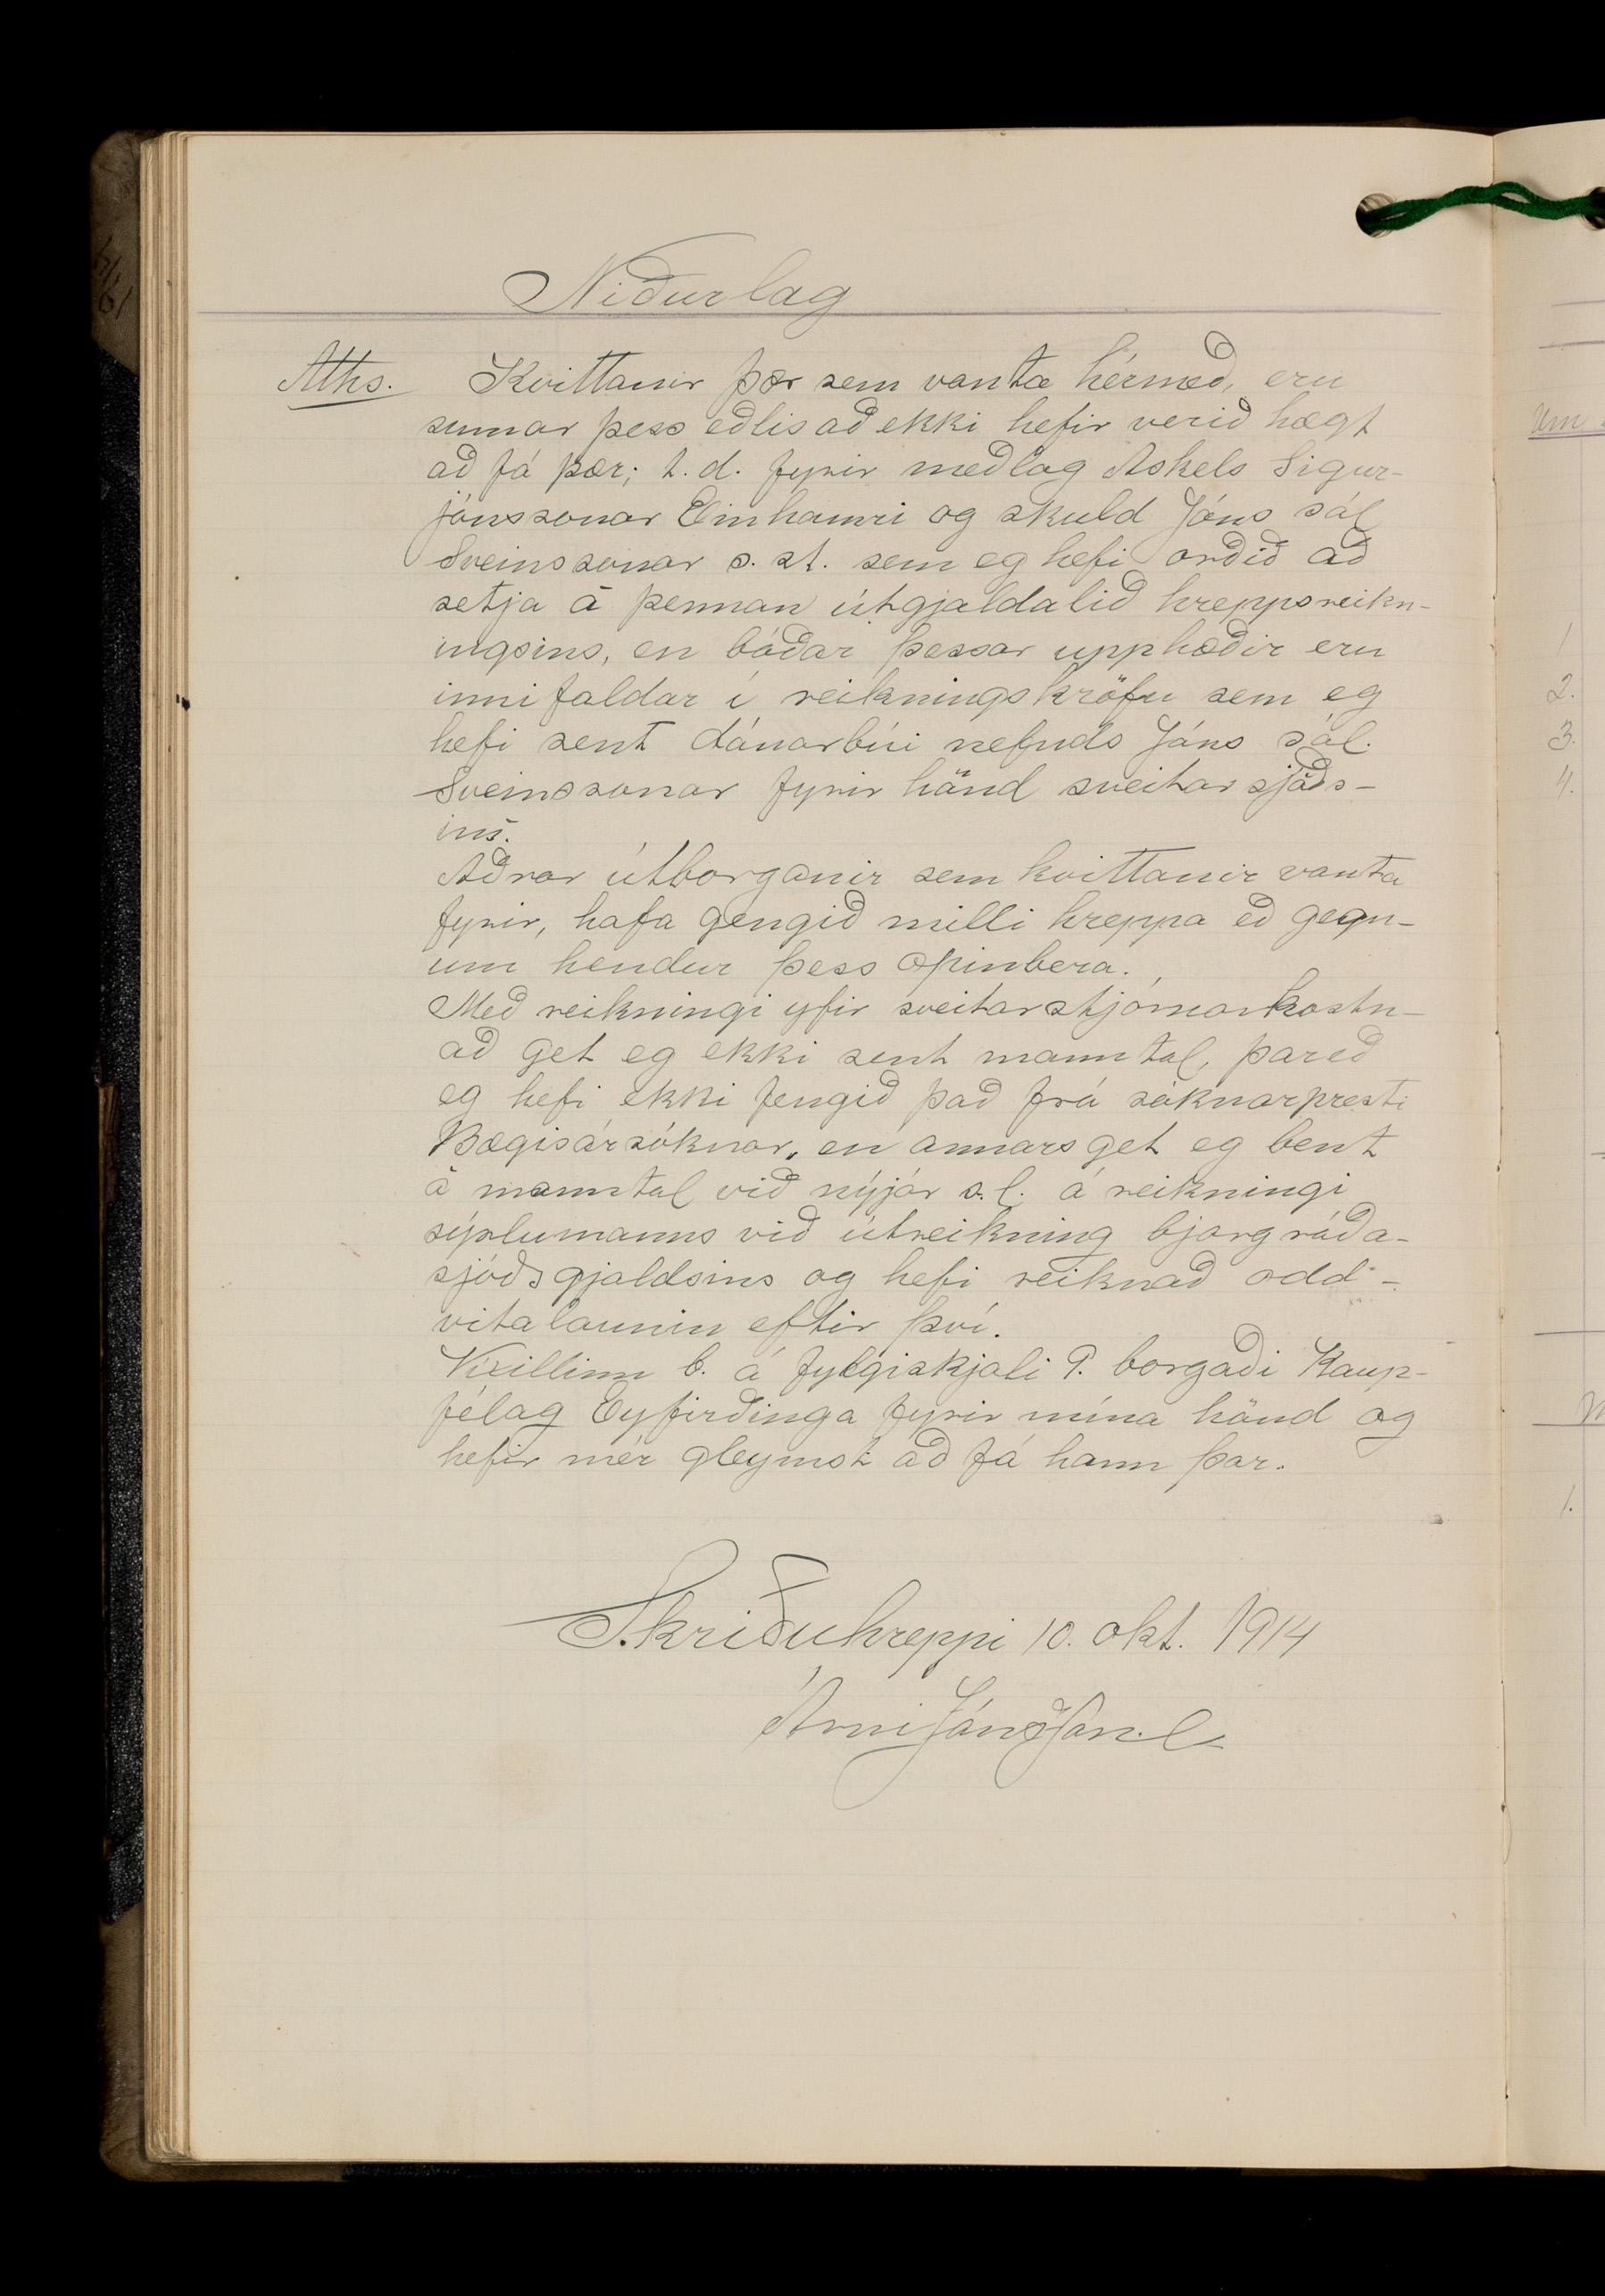 Niðurlag
Aths. Kvittanir þær sem vanta hérmeð, eru
sumar þess eðlis að ekki hefir verið hægt
að fá þær; t.d. fyrir meðlag Áskels Sigur-
jónssonar Einhamri og skuld Jóns sál
Sveinssonar s. st. sem eg hefi orðið að
setja á þennan útgjaldalið hreppsreikn-
ingsins, en báðar þessar upphæðir eru
innifaldar í reikningskröfu sem eg
hefi sent dánarbúi nefnds Jóns sál.
Sveinssonar fyrir hönd sveitarsjóðs-
ins.
Aðrar útborganir sem kvittanir vanta
fyrir, hafa gengið milli hreppa eð gegn-
um hendur þess opinbera.
Með reikningi yfir sveitarstjórnarkostn-
að get eg ekki sent manntal, þareð
eg hefi ekki fengið það frá sóknarpresti
Bægisársóknar, en annars get eg bent
á manntal við nýjár s.l. á reikningi
sýslumanns við útreikning bjargráða-
sjóðsgjaldsins og hefi reiknað odd-
vitalaunin eftir því.
b. á fylgiskjali 9. borgaði Kaup-
félag Eyfirðinga fyrir mína hönd og
hefir mér gleymst að fá hann þar.
Skriðuhreppi 10. okt. 1914
Árni Jónsson
Um
1
2.
3.
4.
1.